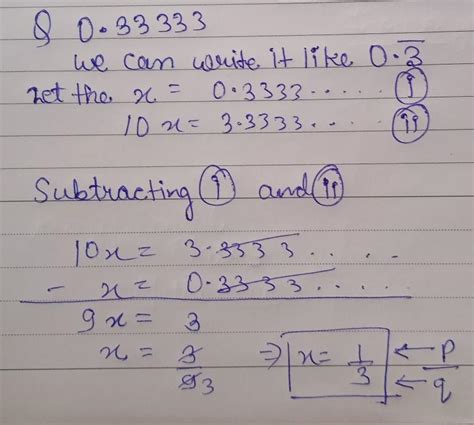 Q 0.33333
we can write it like 0.3̅
Let the x = 0.3333..... (i)
10x = 3.3333..... (ii)
Subtracting (i) and (ii)
10x = 3.3333.....
- x = 0.3333.....
9x = 3
x = 3/9 3 ⇒ x = 1/3 ← p/← q